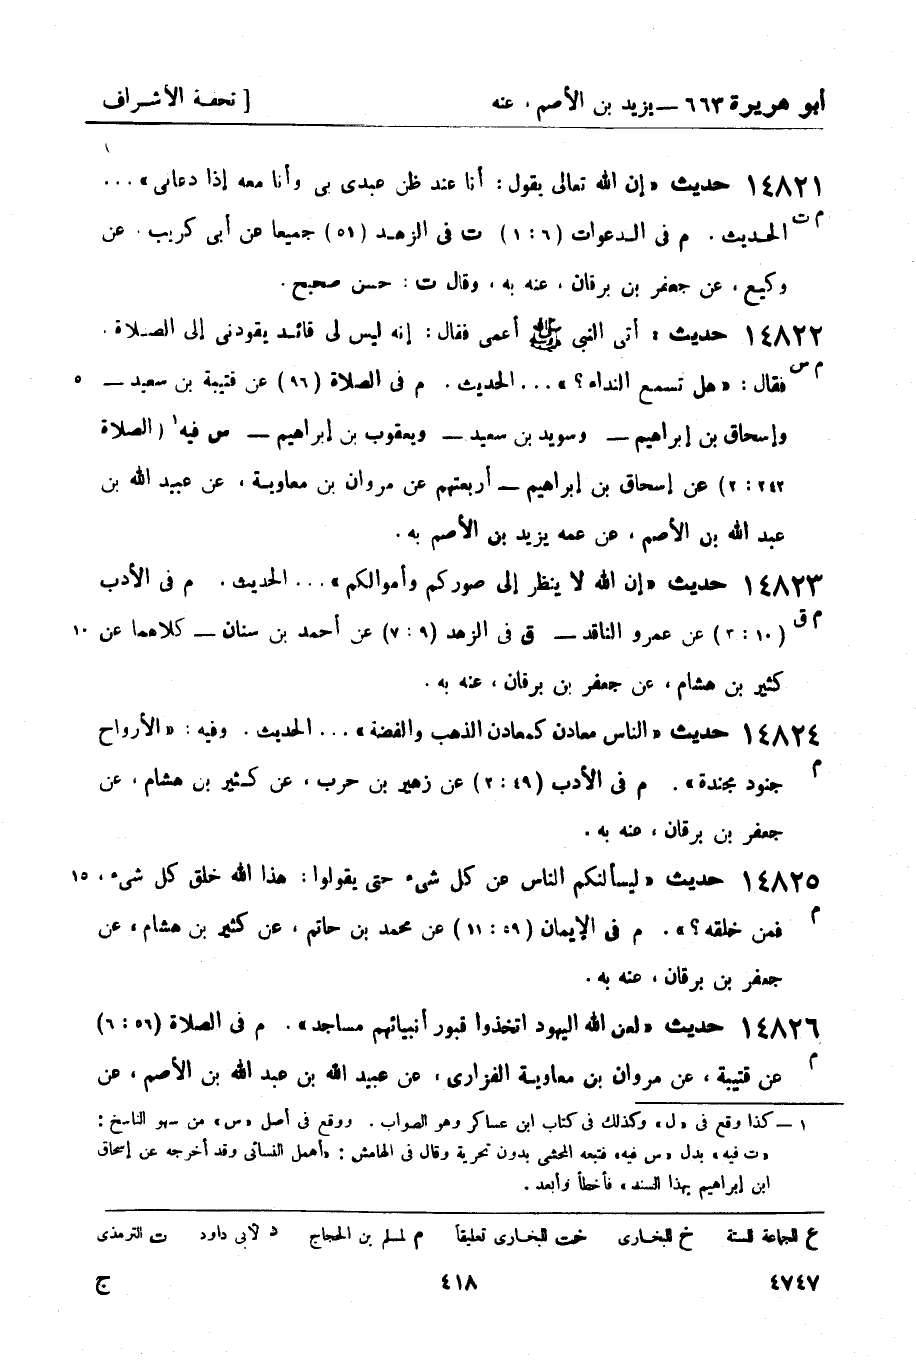 أبو هريرة ٦٦٣ ــ يزيد بن الأصم ، عنه [ تحفة الأشراف
١
١٤٨٢١ حديث «إن الله تعالى يقول : أنا عند ظن عبدى بى وأنا معه إذا دعانى» ...
م ت الحديث . م فى الدعوات (٦ : ١) ت فى الزهد (٥١) جميعا عن أبى كريب . عن
وكيع ، عن جعفر بن برقان ، عنه به ، وقال ت : حسن صحيح .
١٤٨٢٢ حديث : أتى النبى ﷺ أعمى فقال : إنه ليس لى قائد يقودنى إلى الصلاة .
م س فقال : «هل تسمع النداء ؟» ... الحديث . م فى الصلاة (٩٦) عن قتيبة بن سعيد ــ ٥
وإسحاق بن إبراهيم ــ وسويد بن سعيد ــ ويعقوب بن إبراهيم ــ س فيه١ (الصلاة
٢٤٢ : ٢) عن إسحاق بن إبراهيم ــ أربعتهم عن مروان بن معاوية ، عن عبيد الله بن
عبد الله بن الأصم ، عن عمه يزيد بن الأصم به .
١٤٨٢٣ حديث «إن الله لا ينظر إلى صوركم وأموالكم» ... الحديث . م فى الأدب
م ق (١٠ : ٣) عن عمرو الناقد ــ ق فى الزهد (٩ : ٧) عن أحمد بن سنان ــ كلاهما عن ١٠
كثير بن هشام ، عن جعفر بن برقان ، عنه به .
١٤٨٢٤ حديث «الناس معادن كمعادن الذهب والفضة» ... الحديث . وفيه : «الأرواح
م جنود مجندة» . م فى الأدب (٤٩ : ٢) عن زهير بن حرب ، عن كثير بن هشام ، عن
جعفر بن برقان ، عنه به .
١٤٨٢٥ حديث «ليسألنكم الناس عن كل شىء حتى يقولوا : هذا الله خلق كل شىء ، ١٥
م فمن خلقه ؟» . م فى الإيمان (٥٩ : ١١) عن محمد بن حاتم ، عن كثير بن هشام ، عن
جعفر بن برقان ، عنه به .
١٤٨٢٦ حديث «لعن الله اليهود اتخذوا قبور أنبيائهم مساجد» . م فى الصلاة (٥٦ : ٦)
م عن قتيبة ، عن مروان بن معاوية الفزارى ، عن عبيد الله بن عبد الله بن الأصم ، عن
١ ــ كذا وقع فى «ل» وكذلك فى كتاب ابن عساكر وهو الصواب . ووقع فى أصل «س» من سهو الناسخ :
«ت فيه» بدل «س فيه» فتبعه المحشى بدون تحرية وقال فى الهامش : «أهمل النسائى وقد أخرجه عن إسحاق
ابن إبراهيم بهذا السند» فأخطأ وأبعد .
ع للجماعة الستة خ للبخارى خت للبخارى تعليقاً م لمسلم بن الحجاج د لأبى داود ت للترمذى
٤٧٤٧ ٤١٨ ج